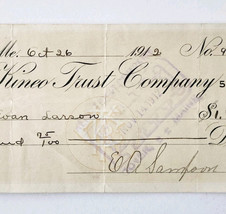 Me. Oct 26 1912 No. 9
Kineo Trust Company S
van Larson $1.
and 75/100 D
E.A. Sampson